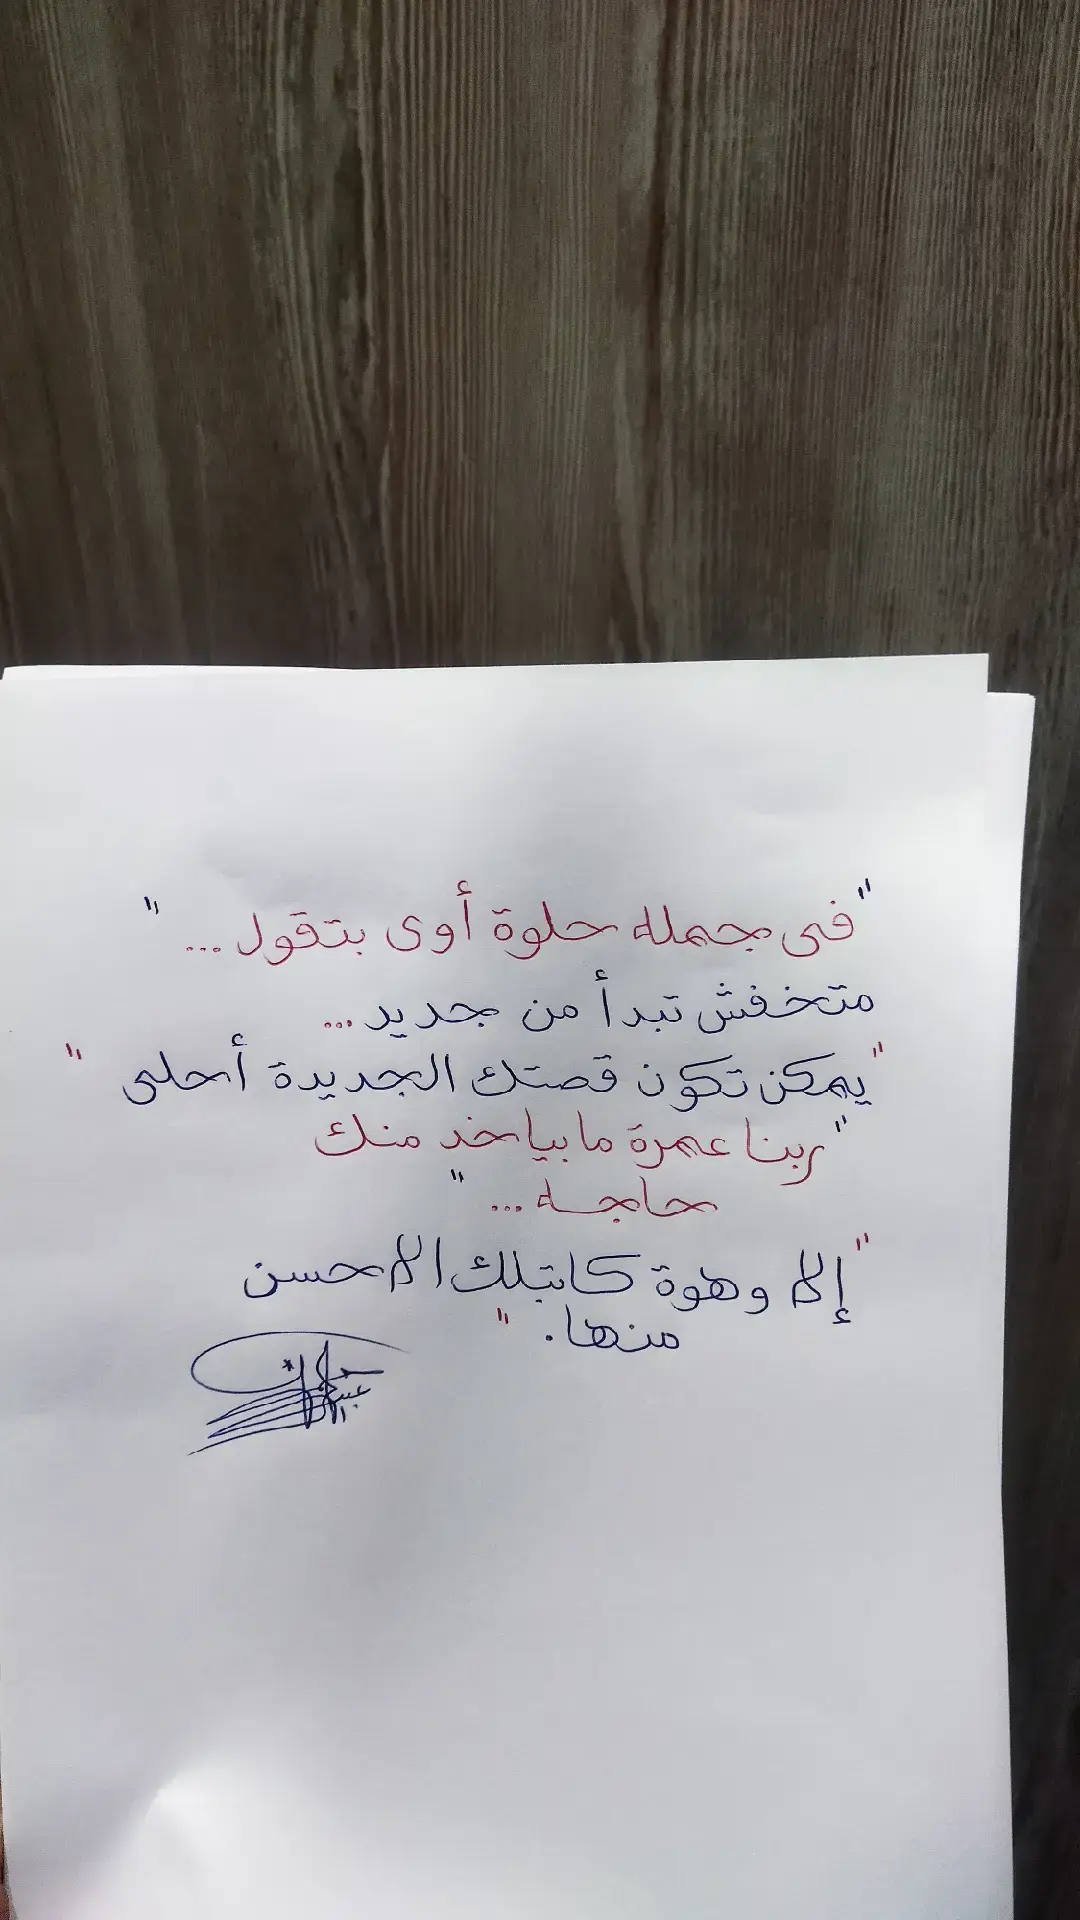 "فى جمله حلوة أوى بتقول ... "
متخفش تبدأ من جديد ...
"يمكن تكون قصتك الجديدة أحلى "
"ربنا عمرة ما بياخد منك
حاجه ... "
"إلا وهوة كاتبلك الاحسن
منها . "